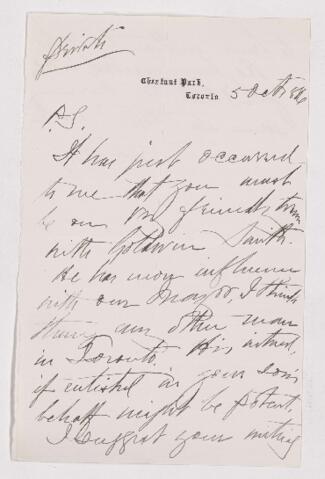 Private
Chestnut Park,
Toronto
5 Oct
P.S.
It has just occurred
to me that you must
be on friendly terms
with Goldwin Smith.
He has more influence
with our Mayor, I think
than any other man
in Toronto. His interest,
if enlisted in your Son's
behalf might be potent.
I suggest your writing